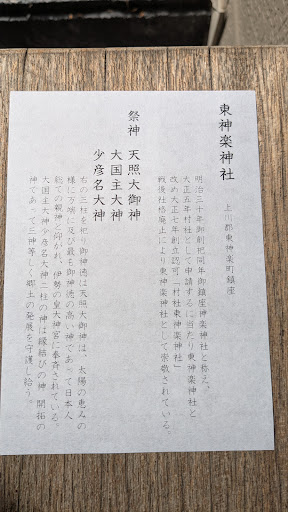 東神楽神社
上川郡東神楽町鎮座
明治三十年御創祀同年御鎮座神楽神社と称え、
大正五年村社として申請するに当たり東神楽神社と
改め大正七年創立認可「村社東神楽神社」
戦後社格廃止により東神楽神社として崇敬されている。
祭神 天照大御神
大国主大神
少彦名大神
右の三柱を祀り御神徳は天照大御神は、太陽の恵みの
様に万物に及び最も御神徳の高い神であって日本人
総ての親神と仰がれ、伊勢の皇大神宮に奉斉されている
大国主大神少彦名大神二柱の神は縁結びの神 開拓の
神であって三神等しく郷土の発展を守護し給う。